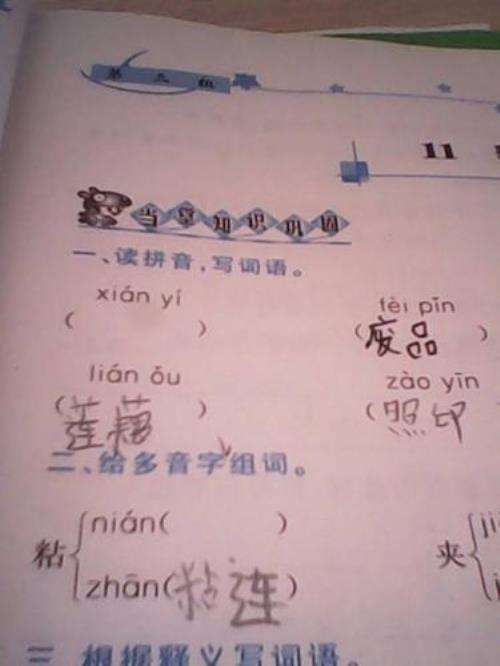 第三组
11
当堂知识巩固
一、读拼音,写词语。
xián yí fèi pǐn
( ) (废品)
lián ǒu zào yīn
(莲藕) (照印
二、给多音字组词。
粘 nián( )
zhān(粘连) 夹
三、根据释义写词语。